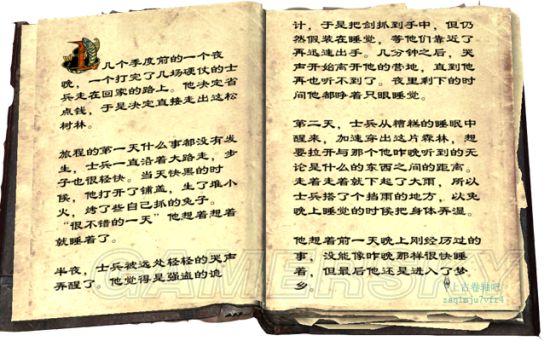 几个季度前的一个夜
晚，一个打完了几场硬仗的士
兵走在回家的路上。他决定省
点钱，于是决定直接走出这松
树林。
旅程的第一天什么事都没有发
生，士兵一直沿着大路走，步
子也很轻快。当天快黑的时
候，他打开了铺盖，生了堆小
火，烤了些自己抓的兔子。
“很不错的一天”他想着想着
就睡着了。
半夜，士兵被远处轻轻的哭声
弄醒了。他觉得是强盗的诡
计，于是把剑抓到手中，但仍
然假装在睡觉，等他们靠近了
再迅速出手。几分钟之后，哭
声开始离开他的营地，直到他
再也听不到了。夜里剩下的时
间他都睁着只眼睡觉。
第二天，士兵从糟糕的睡眠中
醒来，加速穿出这片森林，想
要拉开与那个他昨晚听到的无
论是什么的东西之间的距离。
走着走着就下起了大雨，所以
士兵搭了个挡雨的地方，以免
晚上睡觉的时候把身体弄湿。
他想着前一天晚上刚经历过的
事，没能像昨晚那样很快睡
着，但最后他还是进入了梦
乡。
GAMERSKY
上古卷轴吧
zaq1mju7vfr4